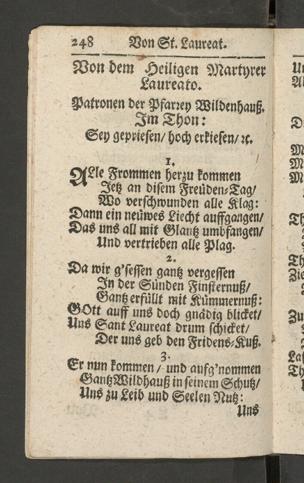 248 Von St. Laureat.
Von dem Heiligen Martyrer
Laureato.
Patronen der Pfarrey Wildenhauß.
Im Thon:
Sey gepriesen/ hoch erkiesen/ ꝛc.
1.
ALle Frommen herzu kommen
Jetz an disem Freüden-Tag/
Wo verschwunden alle Klag:
Dann ein neüwes Liecht auffgangen/
Das uns all mit Glantz umbfangen/
Und vertrieben alle Plag.
2.
Da wir g'sessen gantz vergessen
In der Sünden Finsternuß/
Gantz erfüllt mit Kümmernuß:
GOtt auff uns doch gnädig blicket/
Uns Sant Laureat drum schicket/
Der uns geb den Fridens-Kuß.
3.
Er nun kommen/ und aufg'nommen
Gantz Wildhauß in seinem Schutz/
Uns zu Leib und Seelen Nutz:
Uns